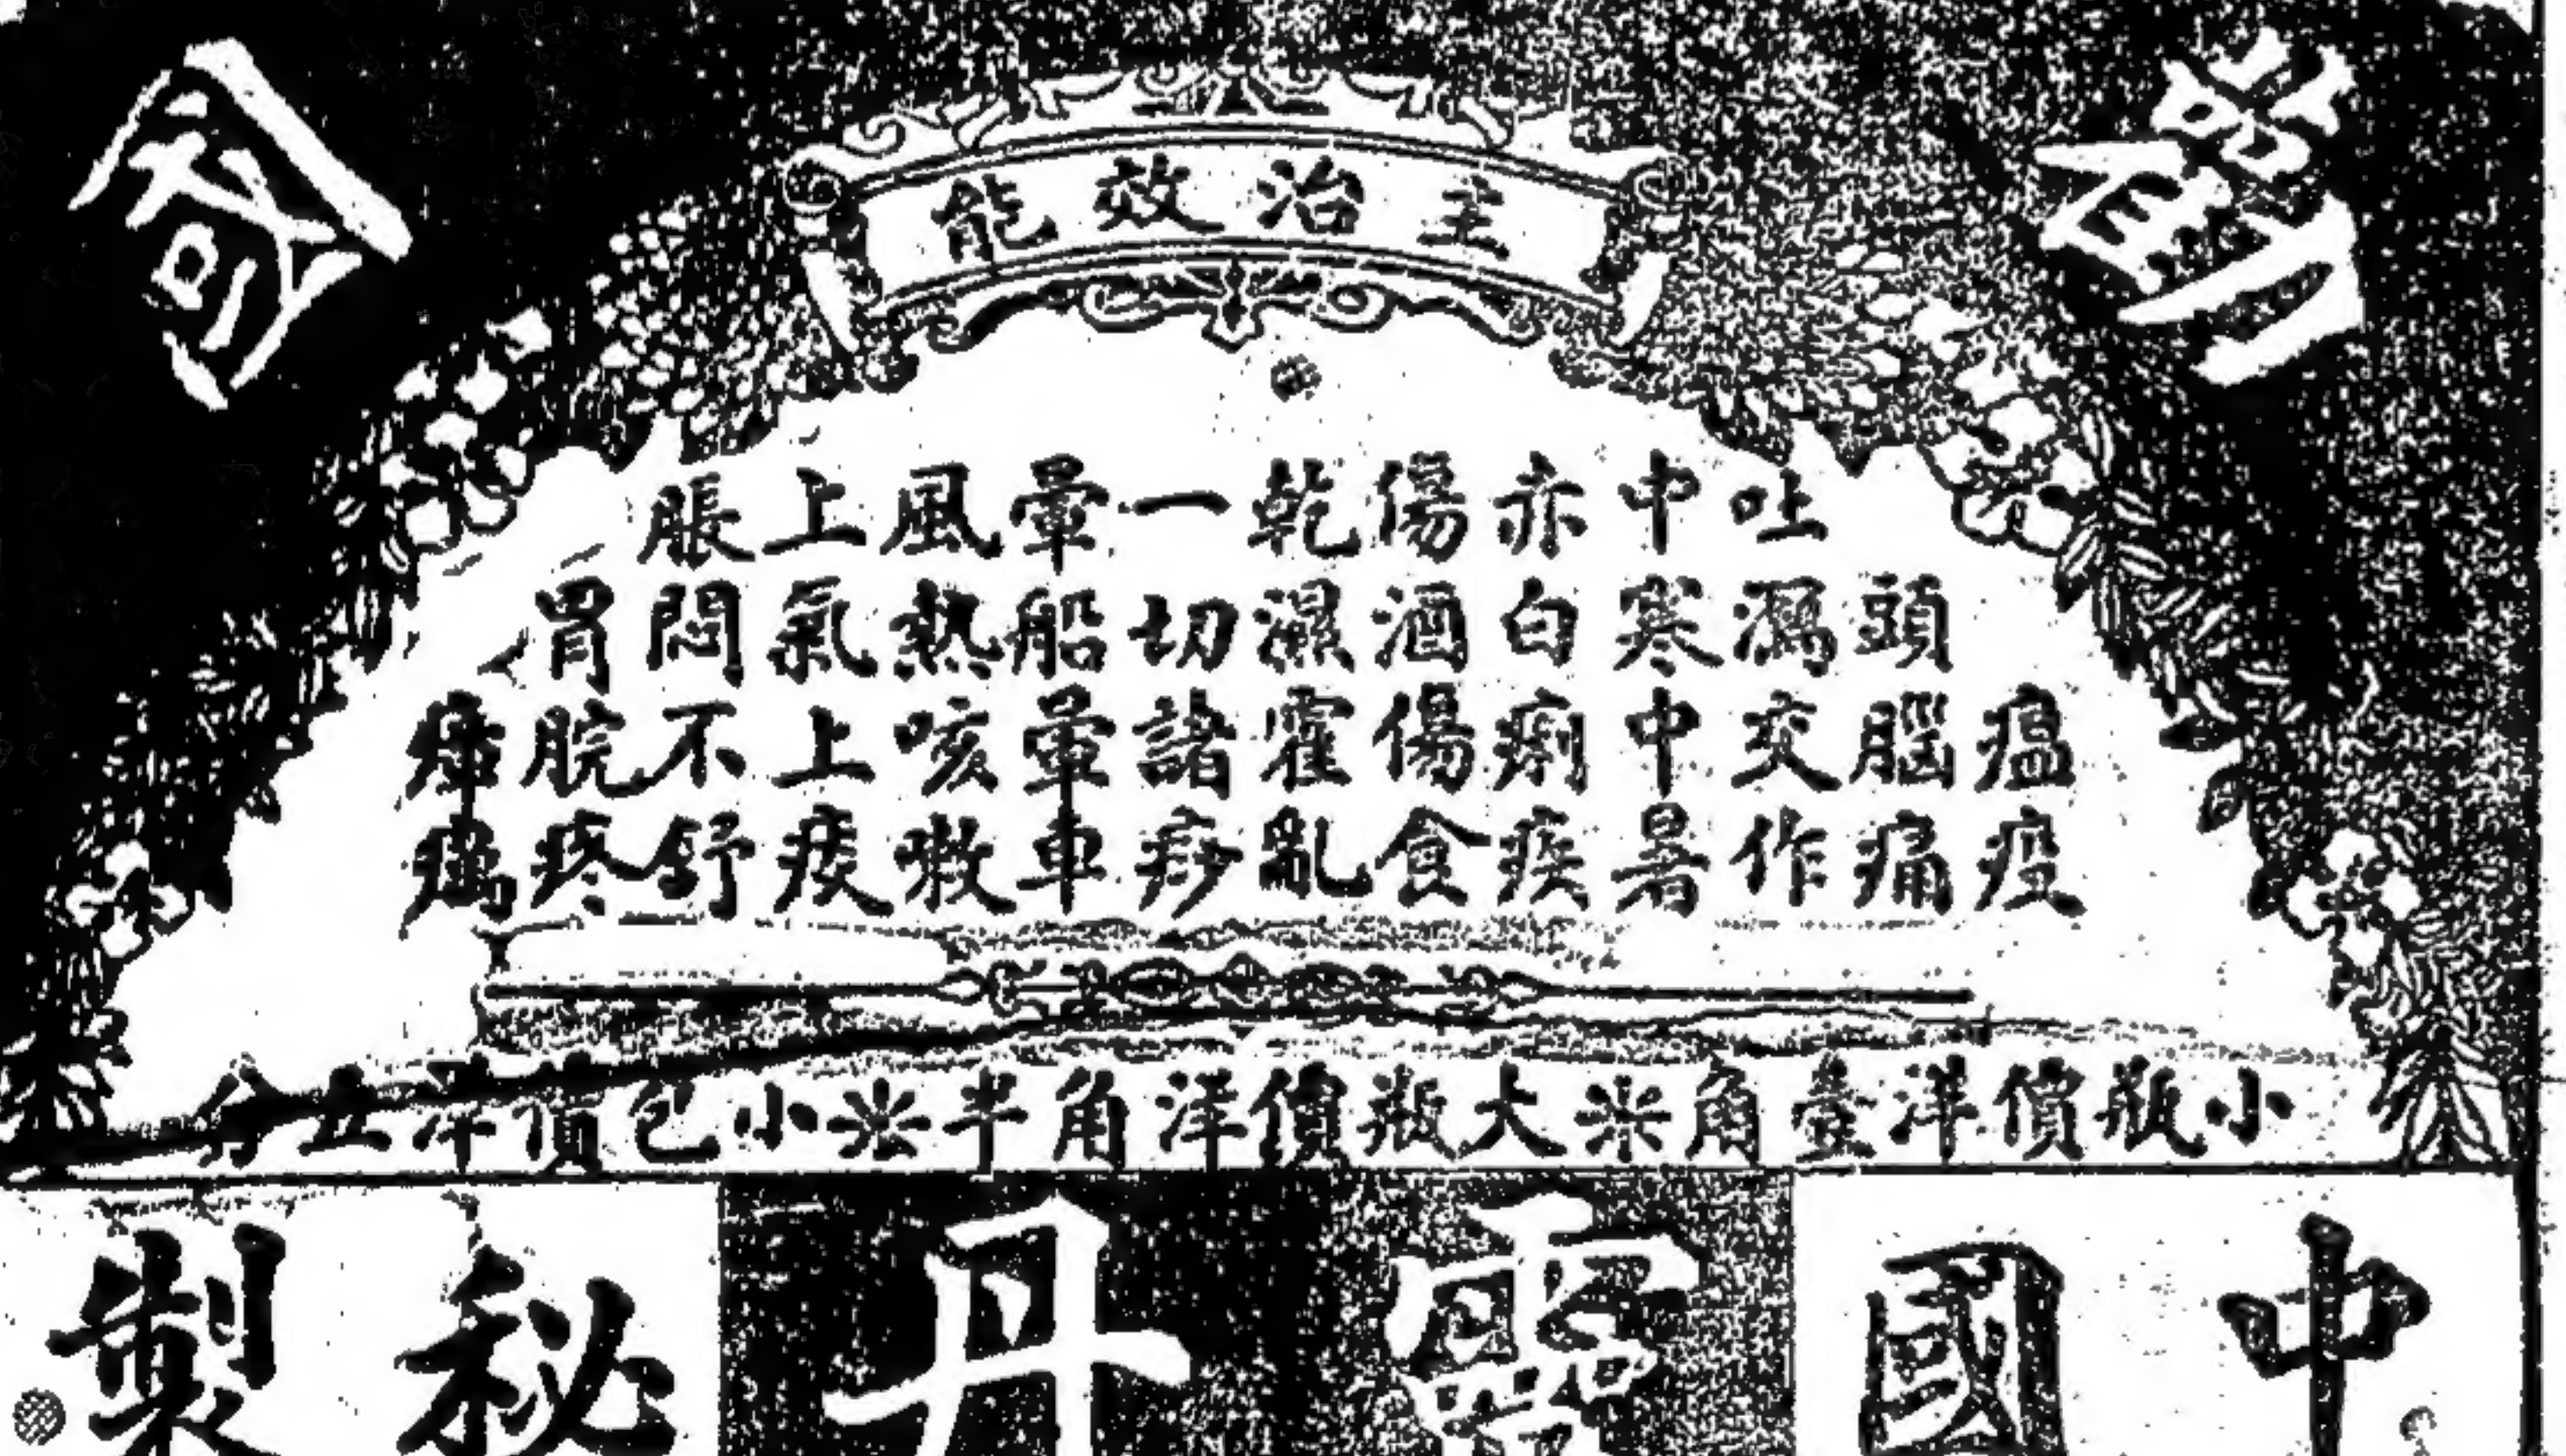 國
主治效能
瘟疫
頭腦痛
吐瀉交作
中寒中暑
亦白痢疾
傷酒傷食
乾濕霍亂
一切諸痧
暈船暈車
風熱咳嗽
上氣上痰
脹悶不舒
胃脘疼
小瓶價洋壹角※大瓶價洋角半※小包價洋五分
中國靈丹秘製